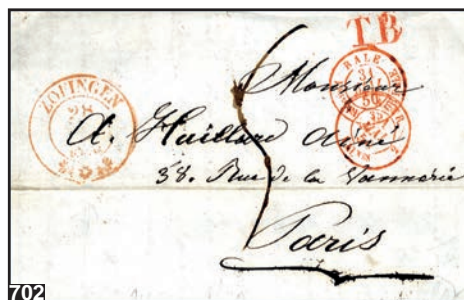 TB
ZOFINGEN
28
BALE
31
50
Monsieur
A. Huillard aîné
38. Rue de la Vannerie
Paris
702